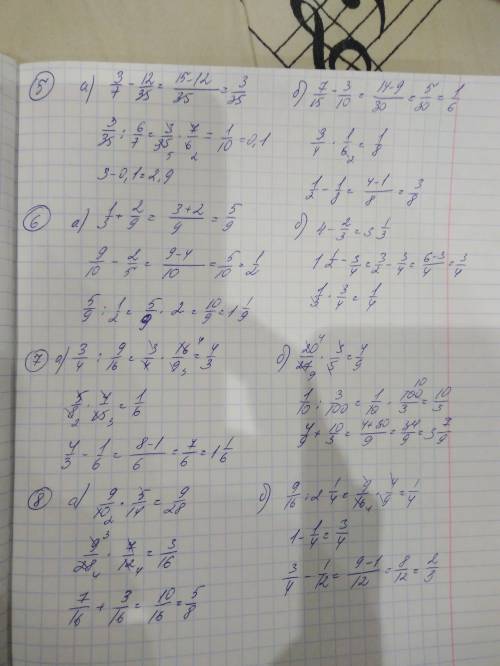 ⑤ а) 3/7 - 12/35 = (15-12)/35 = 3/35
3/35 : 6/7 = 3/35 · 7/6 = 1/10 = 0,1
3 - 0,1 = 2,9
б) 7/15 - 3/10 = (14-9)/30 = 5/30 = 1/6
3/4 · 1/6 = 1/8
1/2 - 1/8 = (4-1)/8 = 3/8
⑥ а) 1/3 + 2/9 = (3+2)/9 = 5/9
9/10 - 2/5 = (9-4)/10 = 5/10 = 1/2
5/9 : 1/2 = 5/9 · 2 = 10/9 = 1 1/9
б) 4 - 2/3 = 3 1/3
1 1/2 - 3/4 = 3/2 - 3/4 = (6-3)/4 = 3/4
1/3 · 3/4 = 1/4
⑦ а) 3/4 : 9/16 = 3/4 · 16/9 = 4/3
5/8 · 4/15 = 1/6
4/3 - 1/6 = (8-1)/6 = 7/6 = 1 1/6
б) 20/27 · 3/5 = 4/9
1/10 : 3/100 = 1/10 · 100/3 = 10/3
4/9 + 10/3 = (4+30)/9 = 34/9 = 3 7/9
⑧ а) 9/10 · 5/14 = 9/28
9/28 · 7/12 = 3/16
7/16 + 3/16 = 10/16 = 5/8
б) 9/16 : 2 1/4 = 9/16 · 4/9 = 1/4
1 - 1/4 = 3/4
3/4 - 1/12 = (9-1)/12 = 8/12 = 2/3